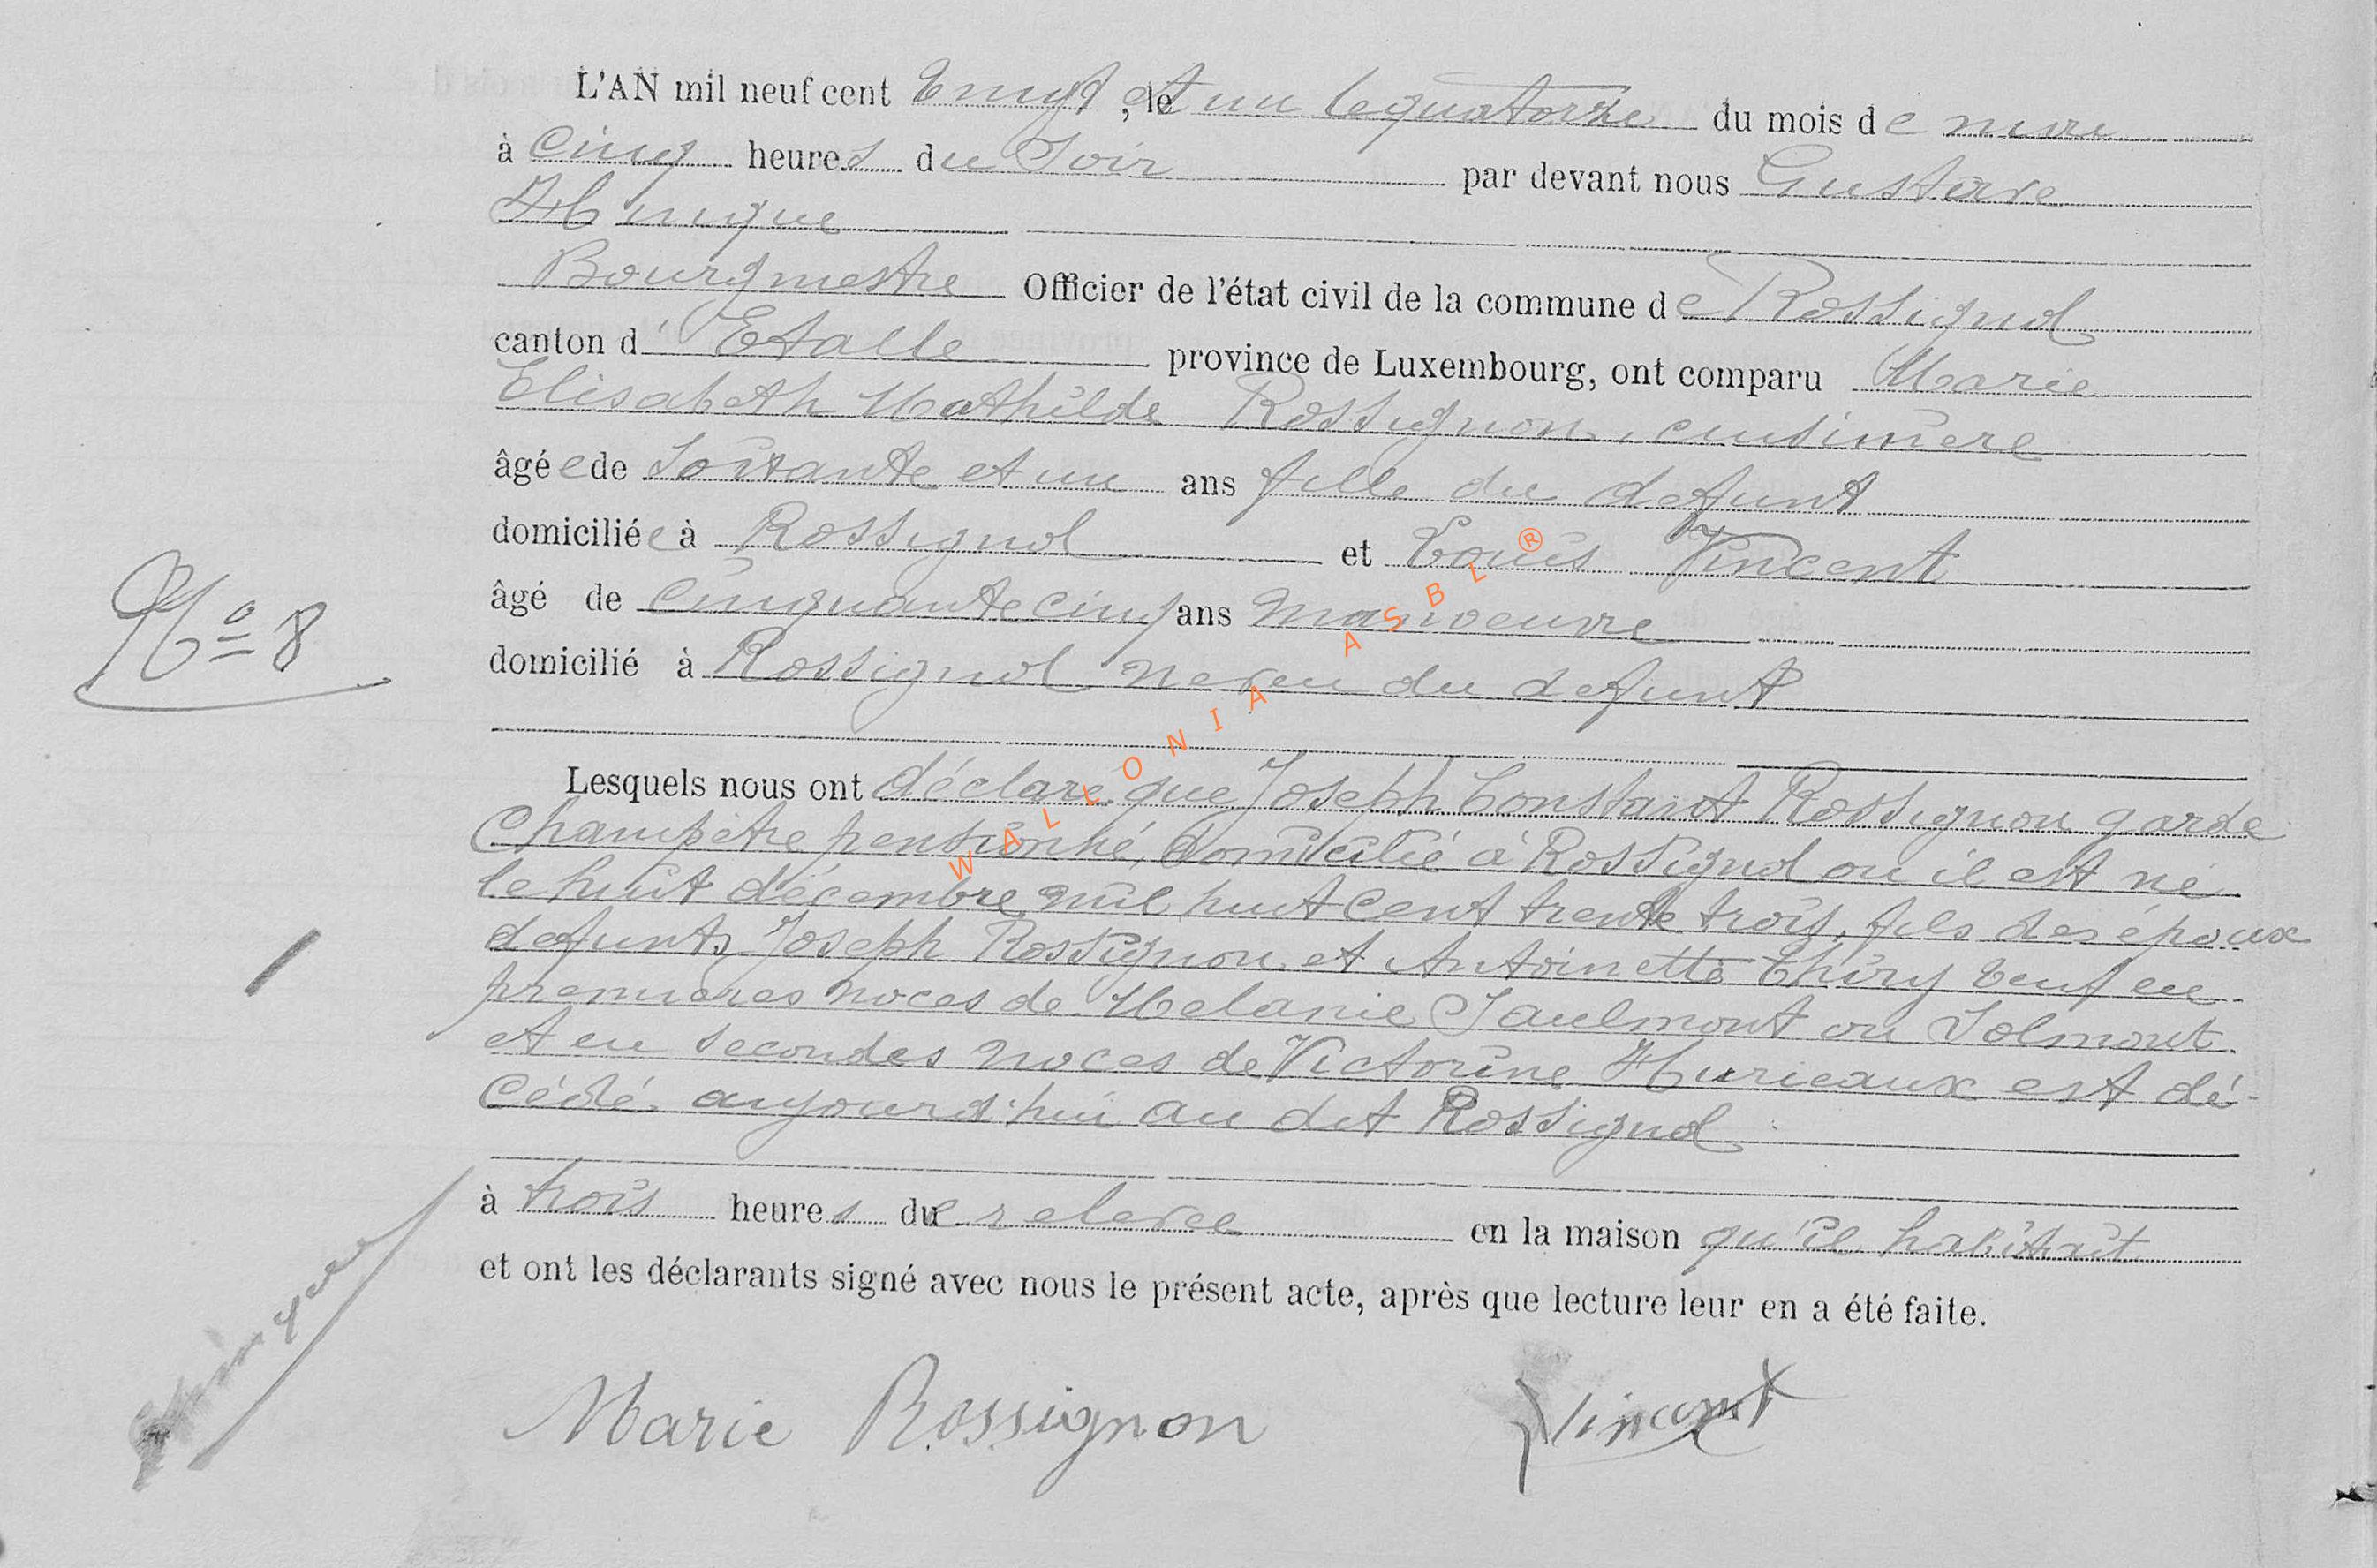 L'AN mil neuf cent vingt et un le quatorze du mois de mai
à cinq heures du Soir par devant nous Gustave
Hinque
Bourgmestre Officier de l'état civil de la commune de Rossignol
canton d'Etalle province de Luxembourg, ont comparu Marie
Elisabeth Mathilde Rossignon, cuisinière
âgée de Soixante et un ans fille du defunt
domiciliée à Rossignol et Louis Vincent
âgé de cinquante cinq ans manoeuvre
N° 8
domicilié à Rossignol neveu du defunt
Lesquels nous ont déclaré que Joseph Constant Rossignon garde
Champêtre pensionné, domicilié à Rossignol ou il est né
le huit décembre mil huit cent trente trois, fils des époux
defunts Joseph Rossignon et Antoinette Thiry veuf en
premieres noces de Melanie Saulmont ou Solmont
et en secondes noces de Victorine Hurieaux est dé-
cédé aujourd'hui au dit Rossignol
à trois heures de relevee en la maison qu'il habitait
et ont les déclarants signé avec nous le présent acte, après que lecture leur en a été faite.
Marie Rossignon Vincent
WALLONIA ASBL ®